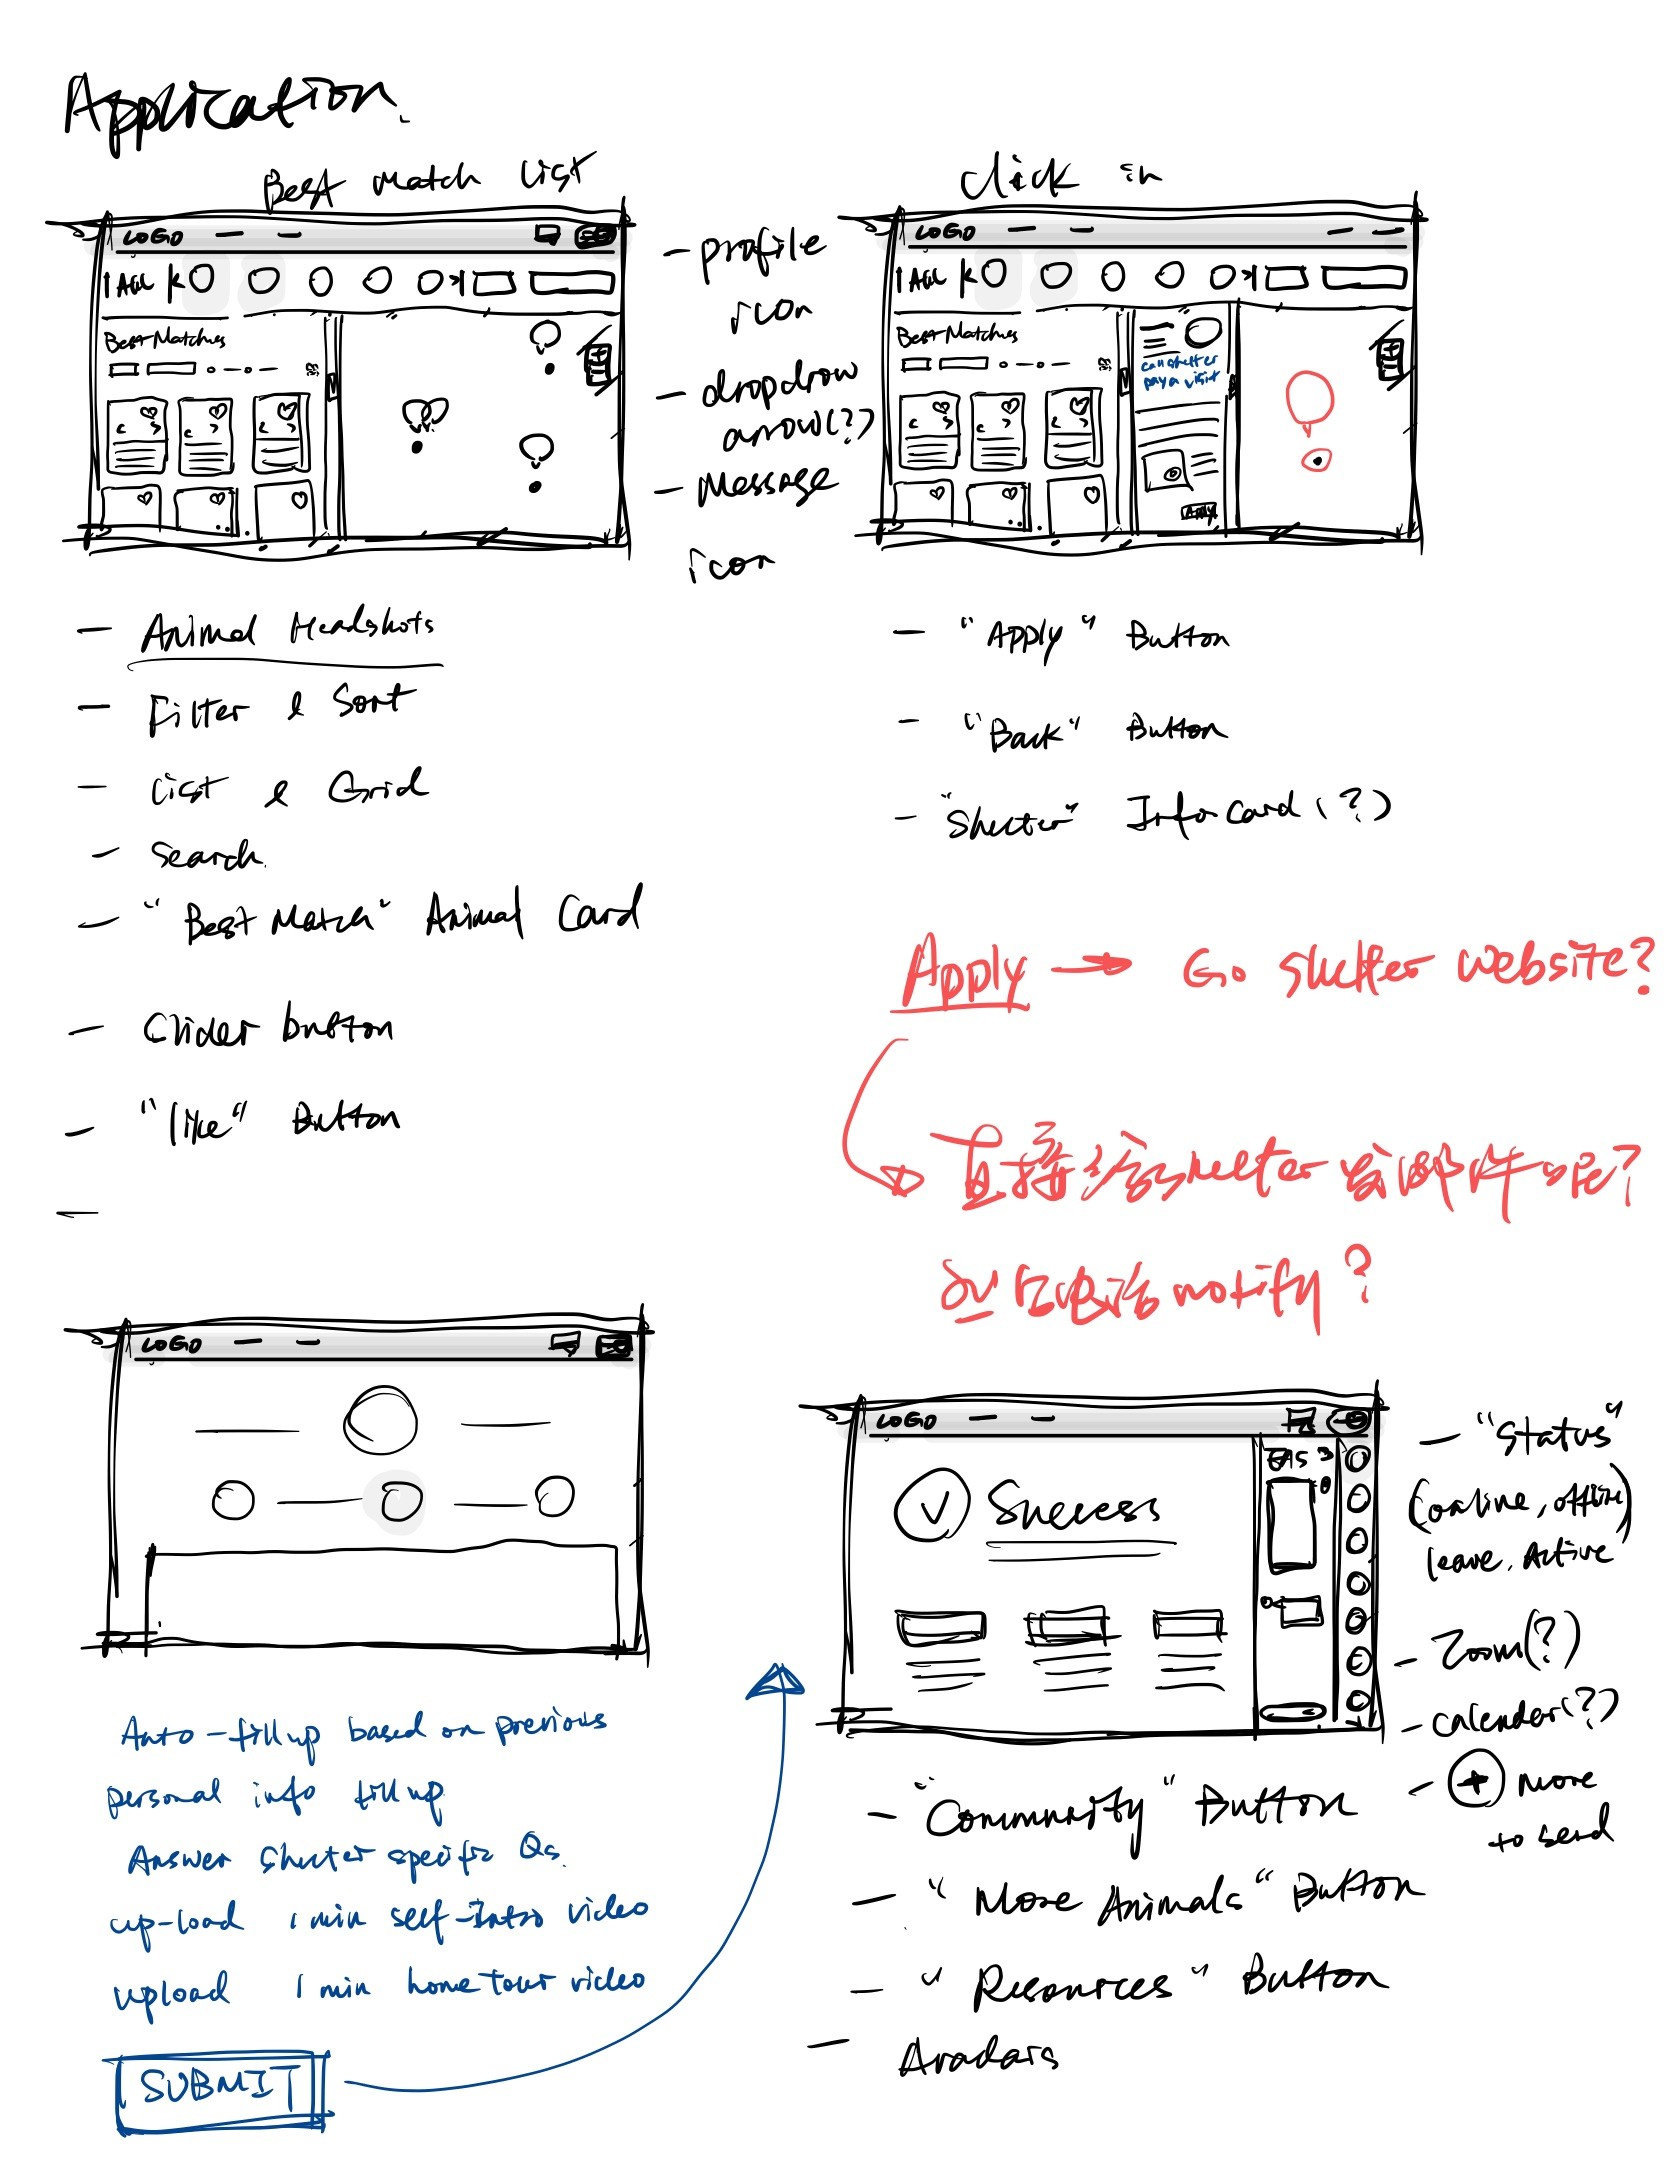 Application.
Best Match List
LOGO
All
Best Matches
- profile
icon
- dropdrow
arrow(?)
- Message
icon
- Animal Headshots
- Filter & Sort
- List & Grid
- Search.
- "Best Match" Animal Card
- Clider button
- "like" Button
-
Click in
LOGO
All
Best Matches
call shelter
pay a visit
Apply
- "Apply" Button
- "Back" Button
- "Shelter" Info Card (?)
Apply → Go shelter website?
直接给shelter发邮件呢?
以后电话notify?
LOGO
Auto-fill up based on previous
personal info fill up
Answer shelter specific Qs.
up-load 1 min self-Intro video
upload 1 min home tour video
SUBMIT
LOGO
Success
- "Status"
(online, offline
leave, Active)
- Zoom(?)
- calender(?)
- + more
to send
- "Community" Button
- "More Animals" Button
- "Resources" Button